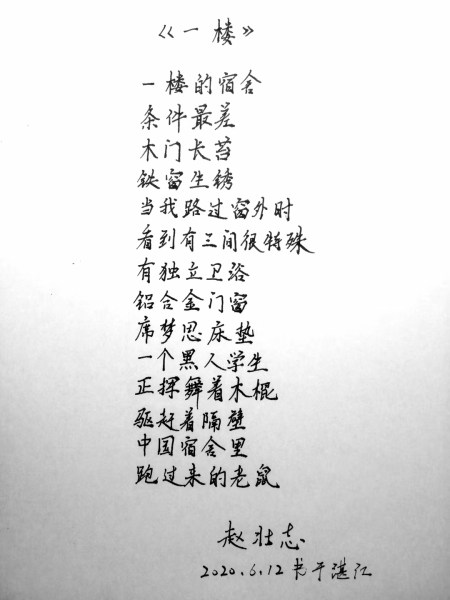 《一楼》
一楼的宿舍
条件最差
木门长苔
铁窗生锈
当我路过窗外时
看到有三间很特殊
有独立卫浴
铝合金门窗
席梦思床垫
一个黑人学生
正挥舞着木棍
驱赶着隔壁
中国宿舍里
跑过来的老鼠
赵壮志
2020.6.12 书于湛江